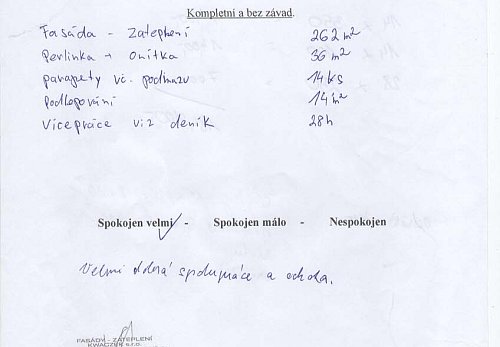 Kompletní a bez závad.
Fasáda - zateplení 262 m²
Perlinka + Omítka 36 m²
parapety vč. podmazu 14 ks
Podlepování 14 m²
Vícepráce viz deník 28h
Spokojen velmi - Spokojen málo - Nespokojen
Velmi dobrá spolupráce a ochota.
FASÁDY - ZATEPLENÍ
KWACZEK s.r.o.